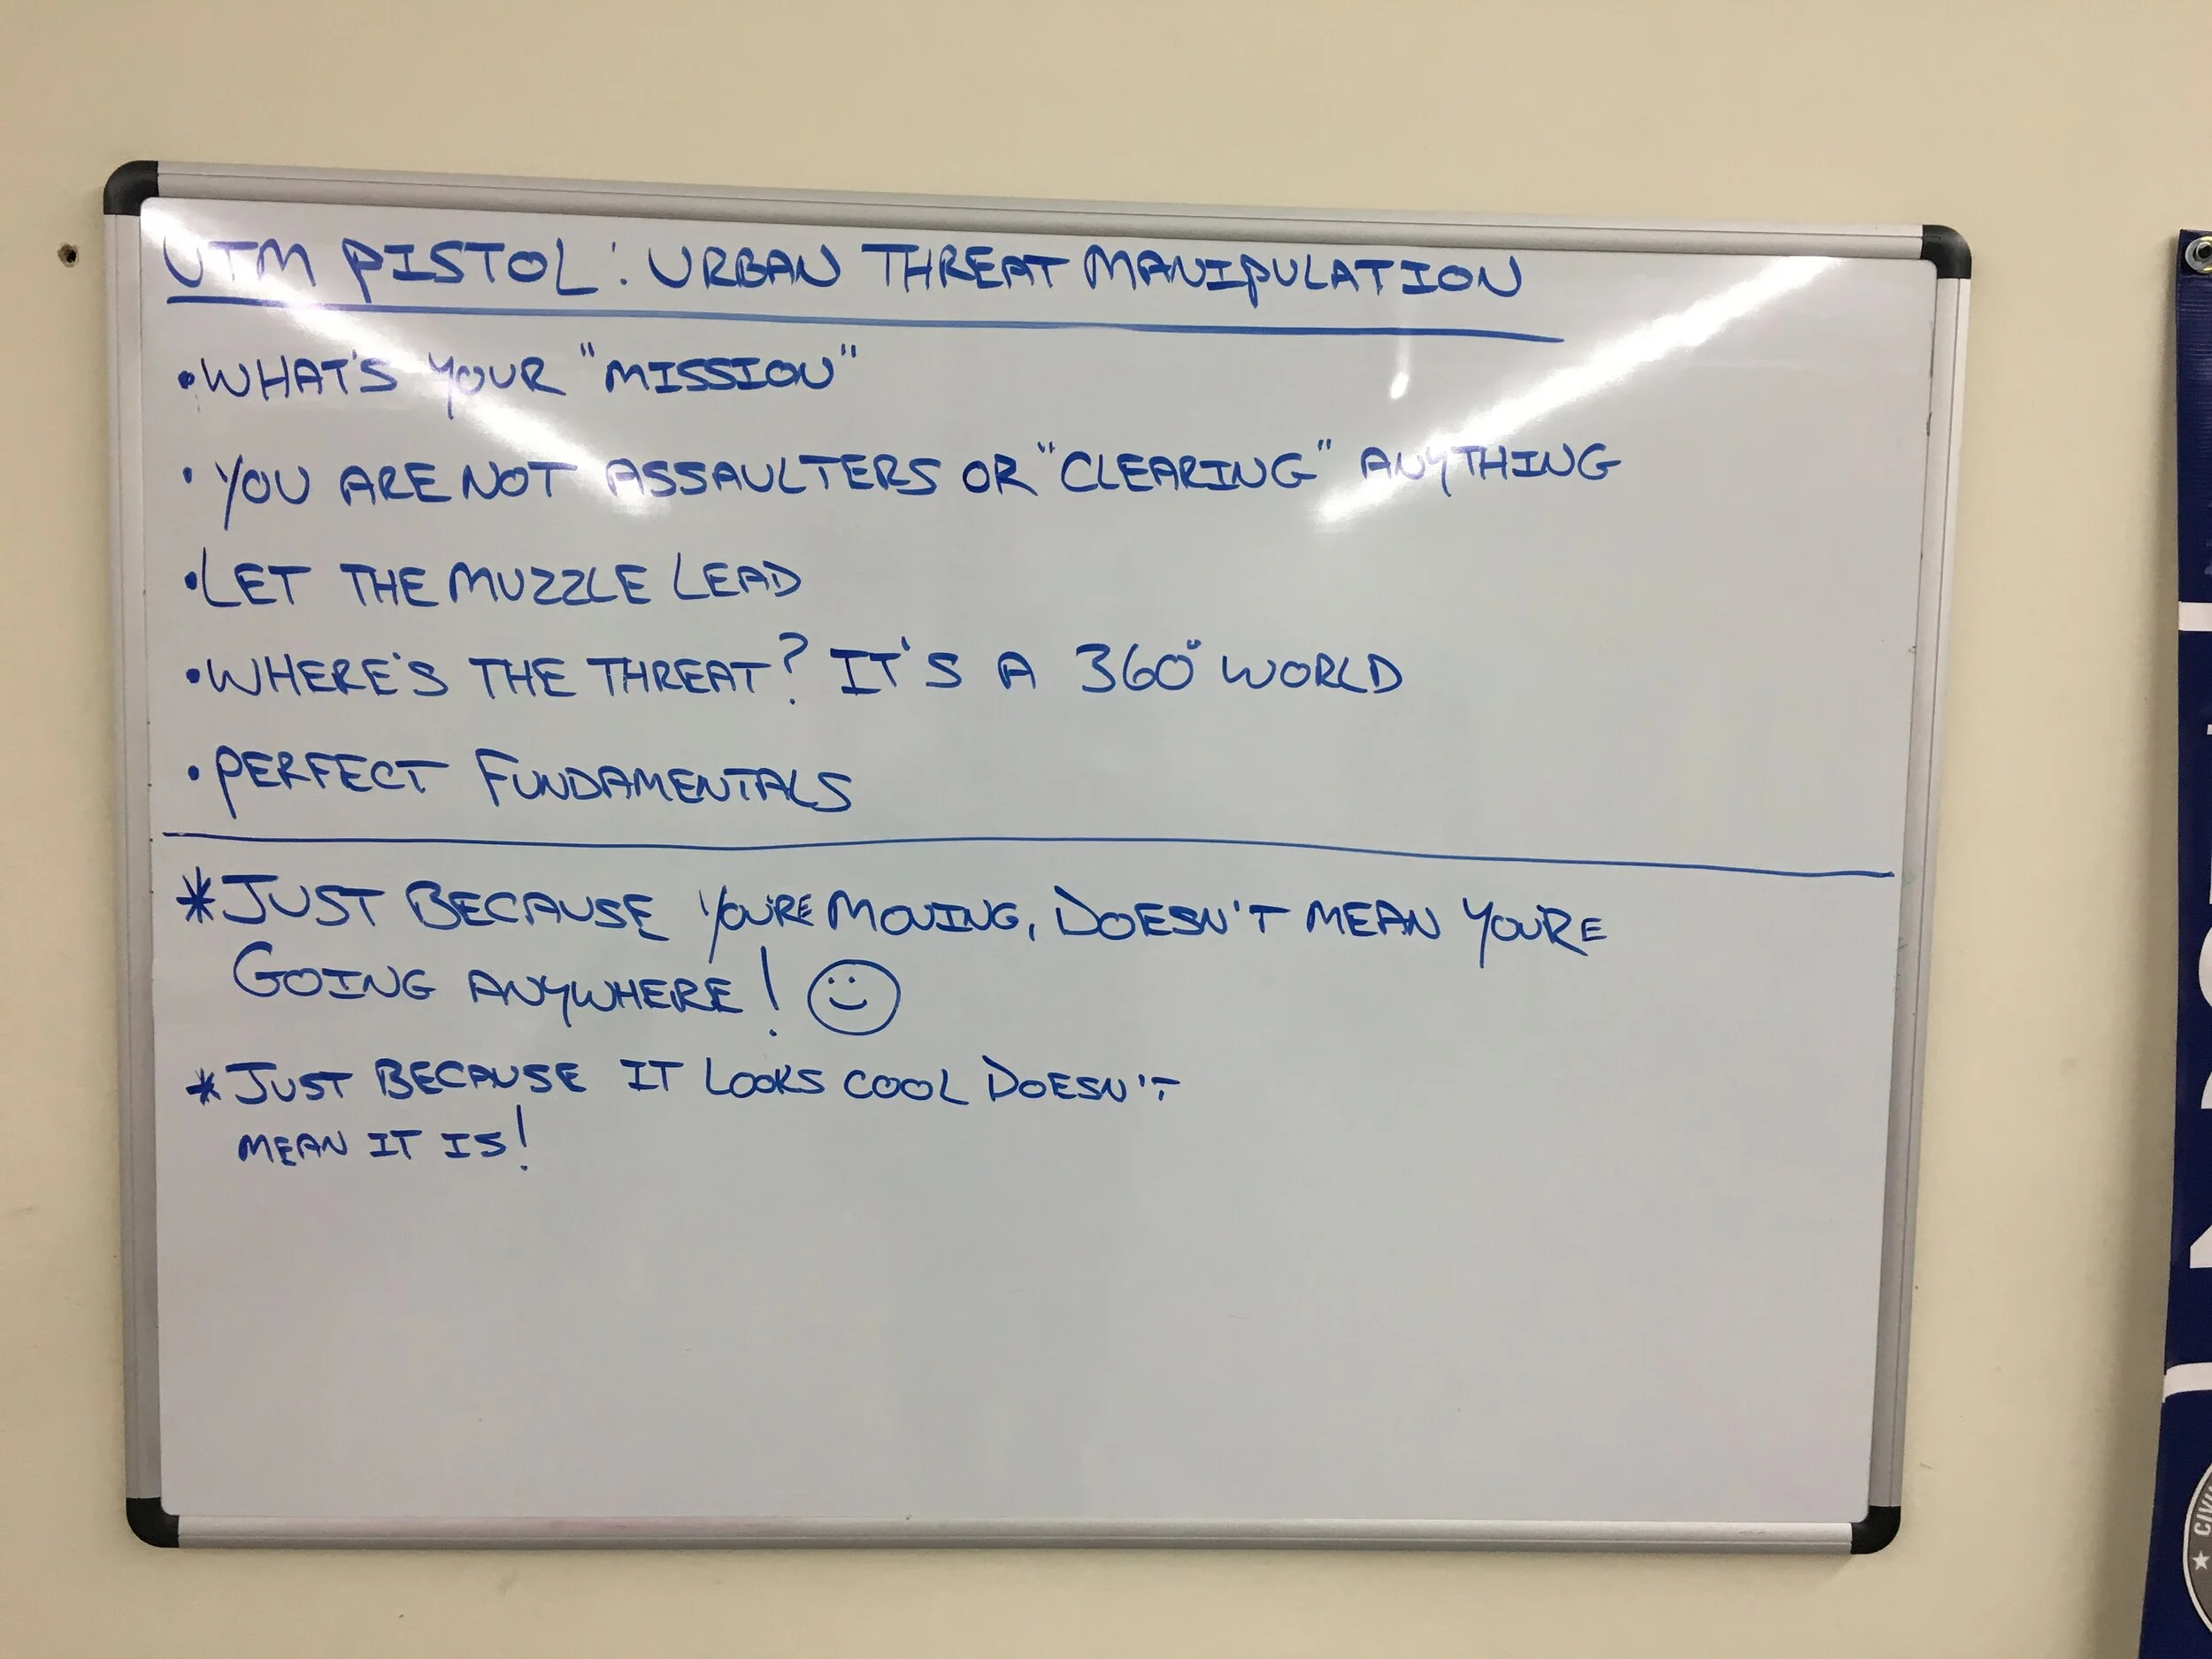 UTM PISTOL: URBAN THREAT MANIPULATION
•WHAT'S YOUR "MISSION"
•YOU ARE NOT ASSAULTERS OR "CLEARING" ANYTHING
•LET THE MUZZLE LEAD
•WHERE'S THE THREAT? IT'S A 360° WORLD
•PERFECT FUNDAMENTALS
*JUST BECAUSE YOU'RE MOVING, DOESN'T MEAN YOU'RE
GOING ANYWHERE!
*JUST BECAUSE IT LOOKS COOL DOESN'T
MEAN IT IS!